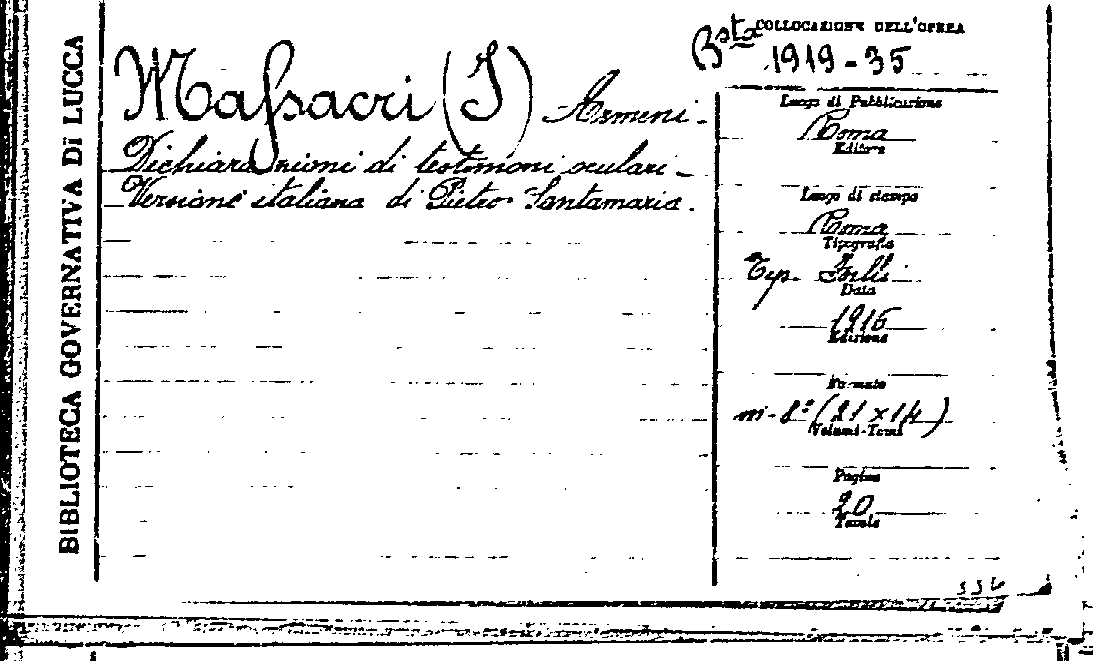 BIBLIOTECA GOVERNATIVA DI LUCCA
Massacri (I) Armeni -
Dichiarazioni di testimoni oculari -
Versione italiana di Pietro Santamaria.
COLLOCAZIONE DELL'OPERA
Bsta 1919-35
Luogo di Pubblicazione
Roma
Editore
Luogo di stampa
Roma
Tipografia
Tip.
Data
1916
Edizione
Formato
in-8º (21 x 14)
Volumi-Tomi
Pagine
20
Tavole